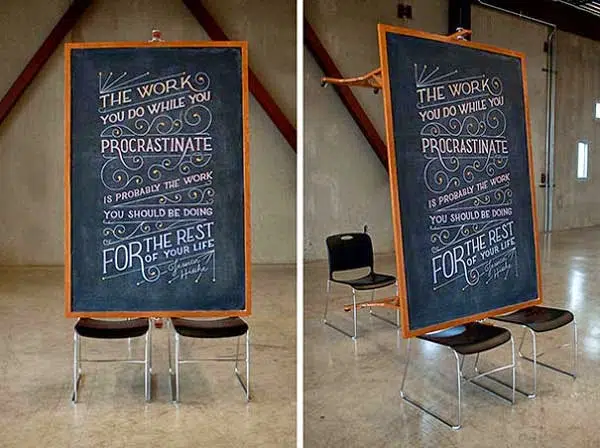 THE WORK
YOU DO WHILE YOU
PROCRASTINATE
IS PROBABLY THE WORK
YOU SHOULD BE DOING
FOR THE REST
OF YOUR LIFE
-Jessica
Hische
THE WORK
YOU DO WHILE YOU
PROCRASTINATE
IS PROBABLY THE WORK
YOU SHOULD BE DOING
FOR THE REST
OF YOUR LIFE
-Jessica
Hische